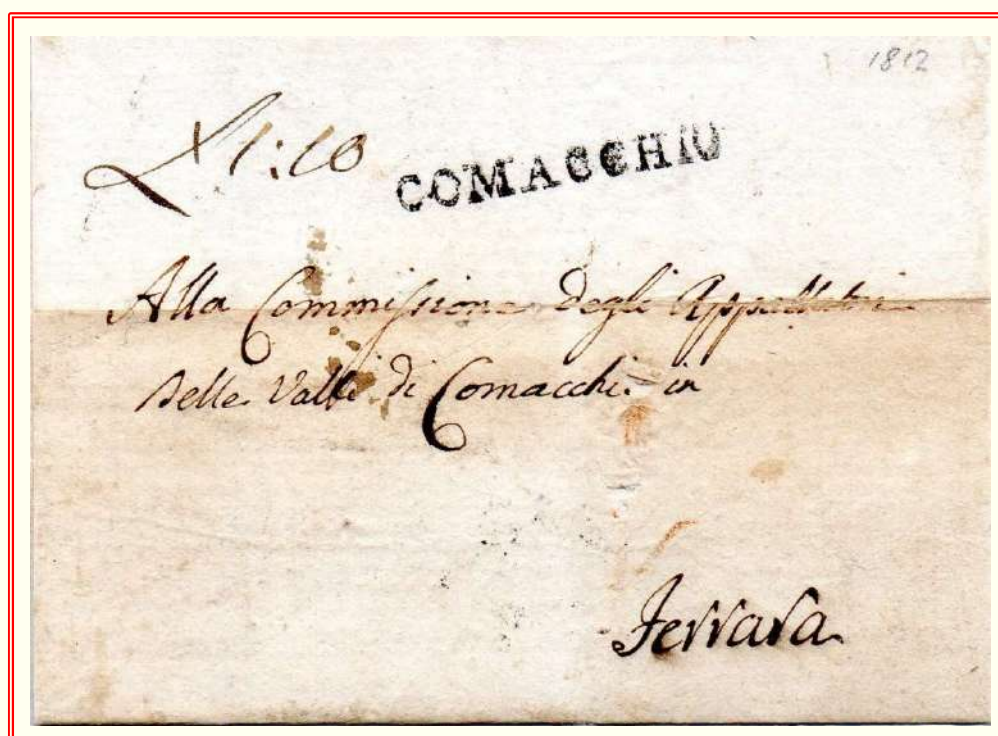 1812
L 1:10
COMACCHIO
Alla Commissione Degli Appaltatori
Delle Valli di Comacchio in
Ferrara